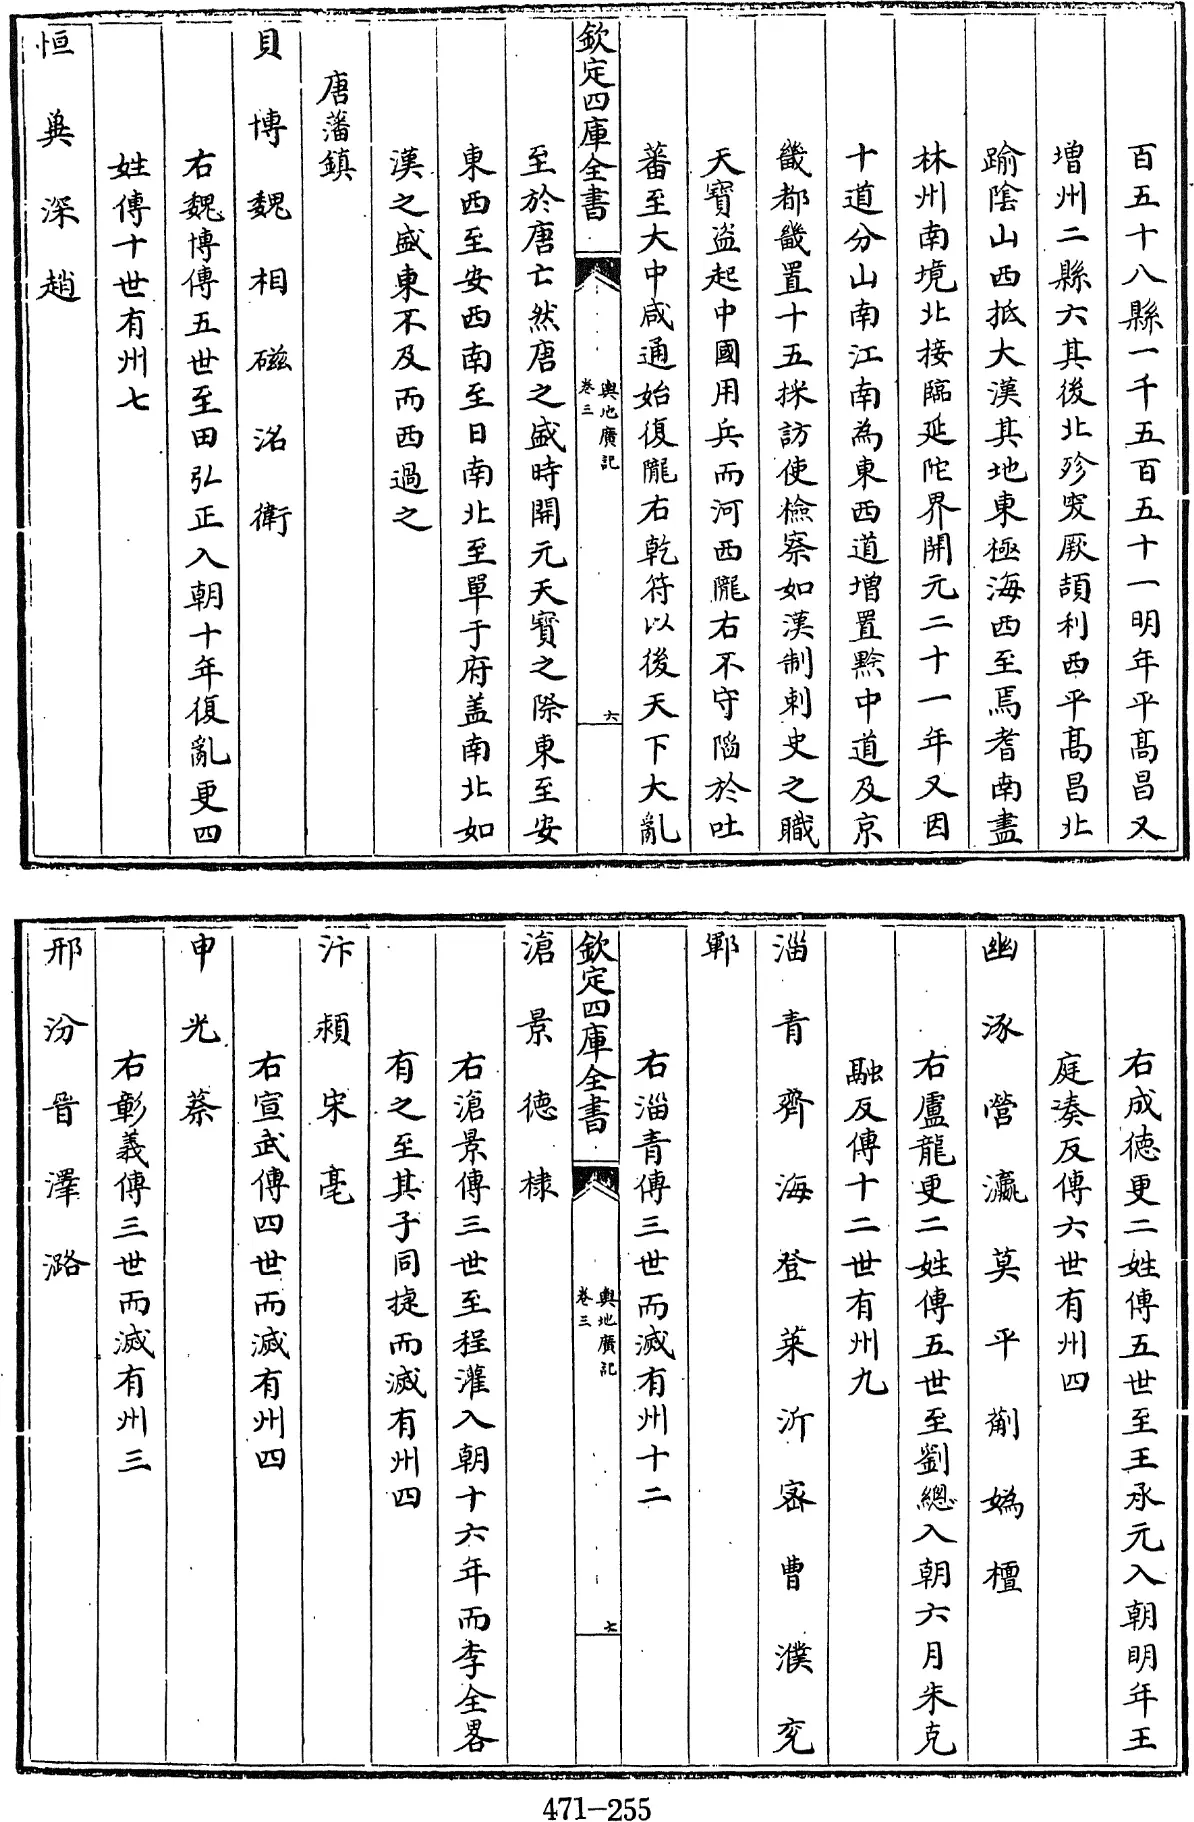 百五十八縣一千五百五十一明年平髙昌又
増州二縣六其後北殄突厥頡利西平髙昌北
踰陰山西抵大漠其地東極海西至焉耆南盡
林州南境北接臨延陀界開元二十一年又因
十道分山南江南為東西道増置黔中道及京
畿都畿置十五採訪使檢察如漢制刺史之職
天寳盗起中國用兵而河西隴右不守陷於吐
蕃至大中咸通始復隴右乾符以後天下大亂
欽定四庫全書
輿地廣記
卷三
六
至於唐亡然唐之盛時開元天寳之際東至安
東西至安西南至日南北至單于府盖南北如
漢之盛東不及而西過之
唐藩鎮
貝博魏相磁洺衛
右魏博傳五世至田弘正入朝十年復亂更四
姓傳十世有州七
恒㢲深趙
右成徳更二姓傳五世至王承元入朝明年王
庭凑反傳六世有州四
幽涿營瀛莫平薊媯檀
右盧龍更二姓傳五世至劉總入朝六月朱克
融反傳十二世有州九
淄青齊海登萊沂密曹濮兖
鄆
右淄青傳三世而滅有州十二
欽定四庫全書
輿地廣記
卷三
七
滄景德棣
右滄景傳三世至程灌入朝十六年而李全畧
有之至其子同㨗而滅有州四
汴潁宋亳
右宣武傳四世而滅有州四
申光蔡
右彰義傳三世而滅有州三
邢汾晉澤潞
471-255